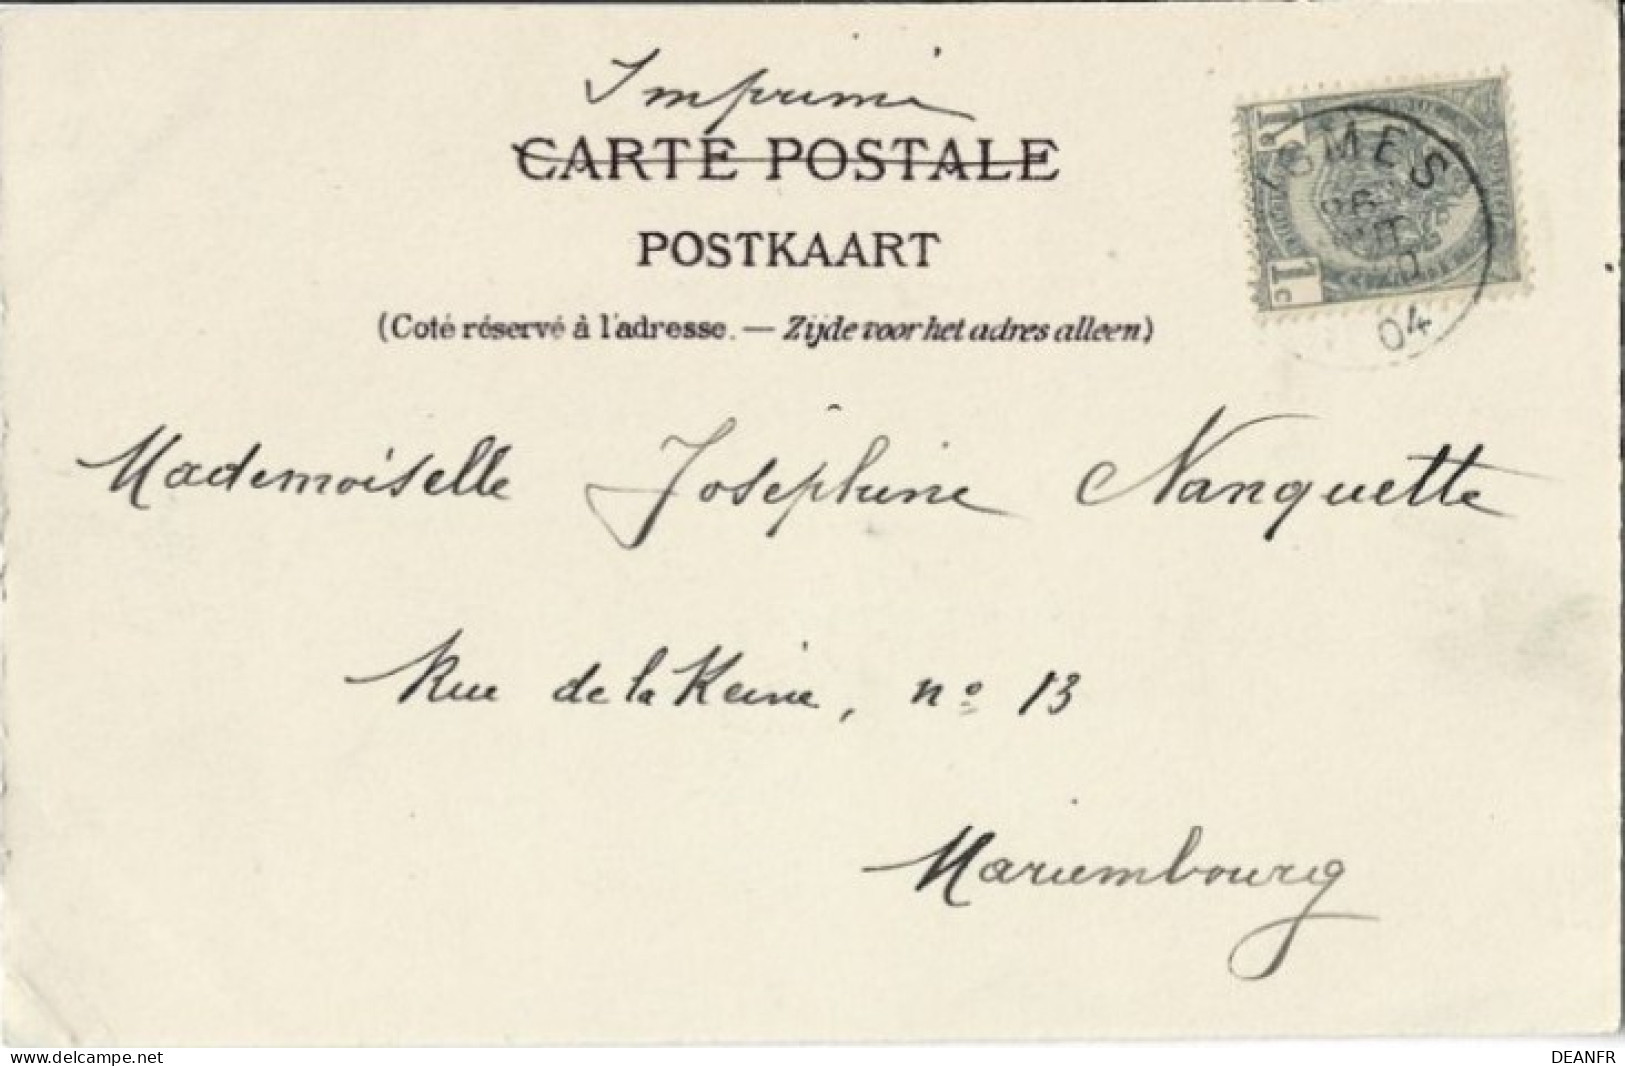 Imprimé
CARTE POSTALE
POSTKAART
(Coté réservé à l'adresse. — Zijde voor het adres alleen)
1 c
04
Mademoiselle Joséphine Nanquette
Rue de la Reine, nº 13
Mariembourg
www.delcampe.net
DEANFR